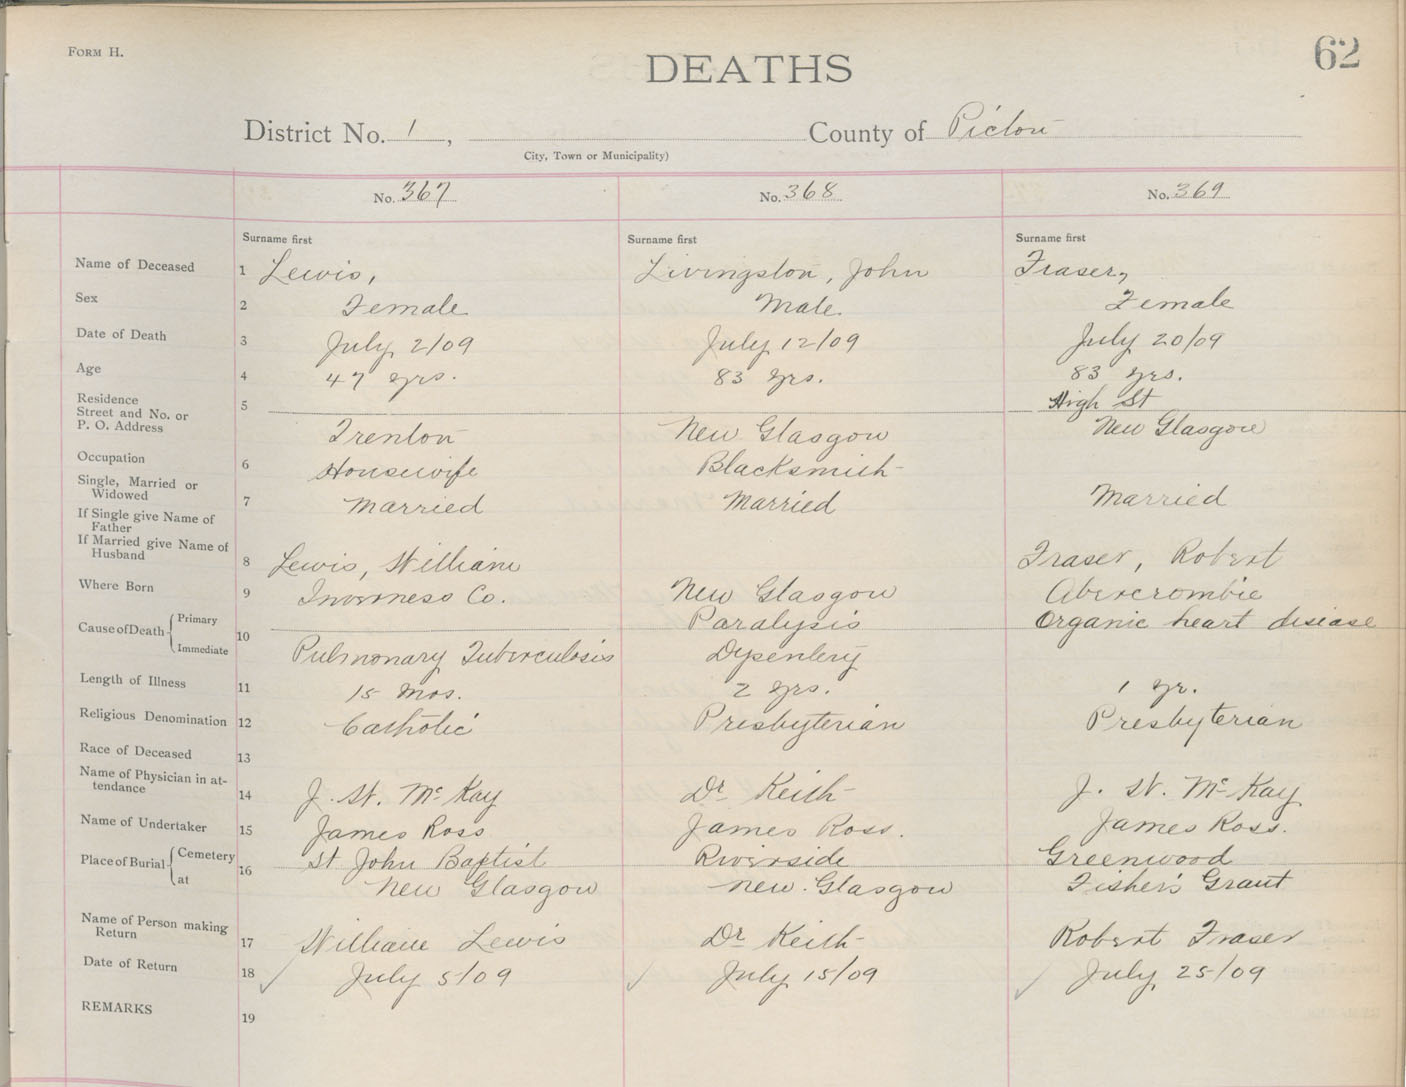 FORM H.
62
DEATHS
District No. 1, County of Pictou
City, Town or Municipality)
No. 367 No. 368 No. 369
Surname first Surname first Surname first
Name of Deceased 1 Lewis, Livingston, John Fraser,
Sex 2 Female Male Female
Date of Death 3 July 2/09 July 12/09 July 20/09
Age 4 47 yrs. 83 yrs. 83 yrs.
Residence 5 High St
Street and No. or
P. O. Address Trenton New Glasgow New Glasgow
Occupation 6 Housewife Blacksmith
Single, Married or
Widowed 7 Married Married Married
If Single give Name of
Father
If Married give Name of
Husband 8 Lewis, William Fraser, Robert
Where Born 9 Inverness Co. New Glasgow Abercrombie
Cause of Death { Primary 10 Paralysis Organic heart disease
Immediate Pulmonary Tuberculosis Dysentery
Length of Illness 11 15 Mos. 2 yrs. 1 yr.
Religious Denomination 12 Catholic Presbyterian Presbyterian
Race of Deceased 13
Name of Physician in at-
tendance 14 J. W. McKay Dr Keith J. W. McKay
Name of Undertaker 15 James Ross James Ross. James Ross.
Place of Burial { Cemetery 16 St John Baptist Riverside Greenwood
at New Glasgow New Glasgow Fisher's Grant
Name of Person making
Return 17 William Lewis Dr Keith Robert Fraser
Date of Return 18 July 5/09 July 15/09 July 25/09
REMARKS 19